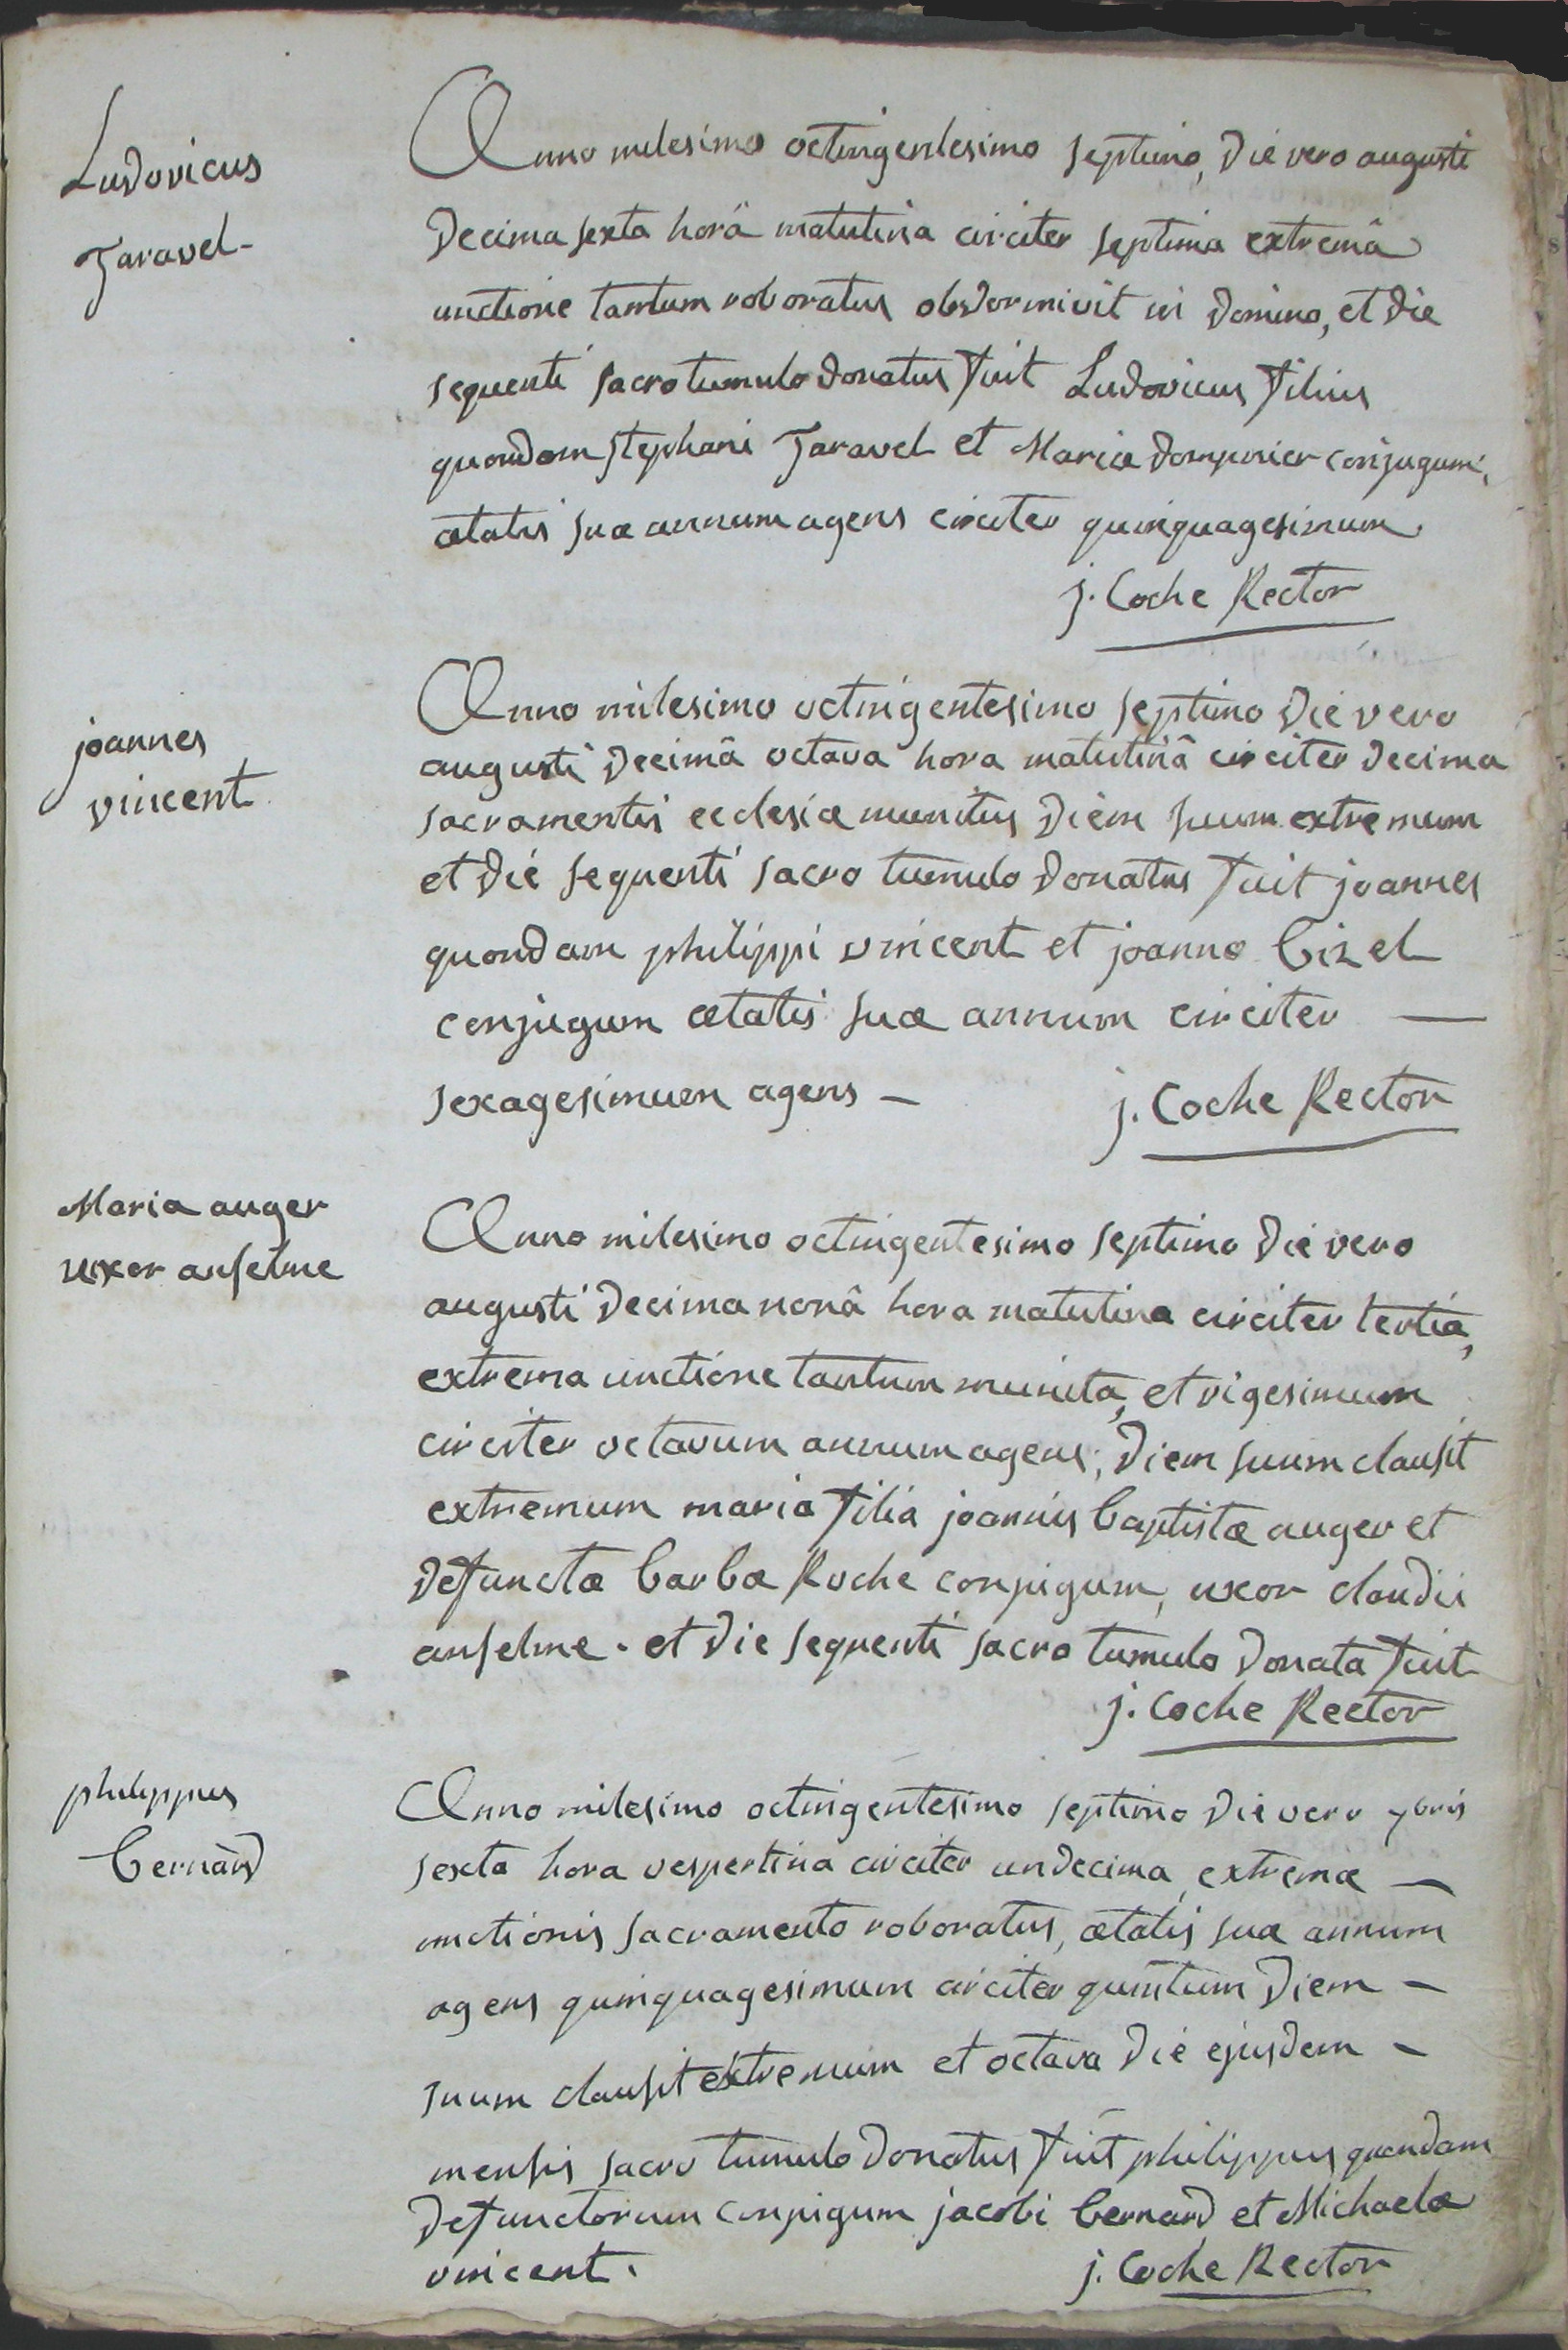 Ludovicus
Taravel-
Anno milesimo octingentesimo septimo, die vero augusti
decima sexta horâ matutina circiter septima extremâ
unctione tantum roboratus obdormivit in domino, et die
sequenti sacro tumulo donatus fuit Ludovicus filius
quondam stephani Taravel et Mariæ dompnier conjugum,
ætatis suæ annum agens circiter quinquagesimum
j. Coche Rector
joannes
vincent
Anno milesimo octingentesimo septimo die vero
augusti decimâ octava hora matutinâ circiter decima
sacramentis ecclesiæ munitus diem suum extremum
et die sequenti sacro tumulo donatus fuit joannes
quondam philippi vincent et joannæ bizel
conjugum ætatis suæ annum circiter —
sexagesimum agens —
j. Coche Rector
Maria auger
uxor anselme
Anno milesimo octingentesimo septimo die vero
augusti decima nonâ hora matutina circiter tertia,
extrema unctione tantum munita, et vigesimum
circiter octavum annum agens, diem suum clausit
extremum maria filia joannis baptistæ auger et
defunctæ barbæ Roche conjugum, uxor claudii
anselme. et die sequenti sacro tumulo donata fuit
j. Coche Rector
philippus
bernard
Anno milesimo octingentesimo septimo die vero 7bris
sexta hora vespertina circiter undecima, extremæ —
unctionis sacramento roboratus, ætatis suæ annum
agens quinquagesimum circiter quintum diem —
suum clausit extremum et octava die ejusdem —
mensis sacro tumulo donatus fuit philippus quondam
defunctorum conjugum jacobi bernard et Michaelæ
vincent.
j. Coche Rector